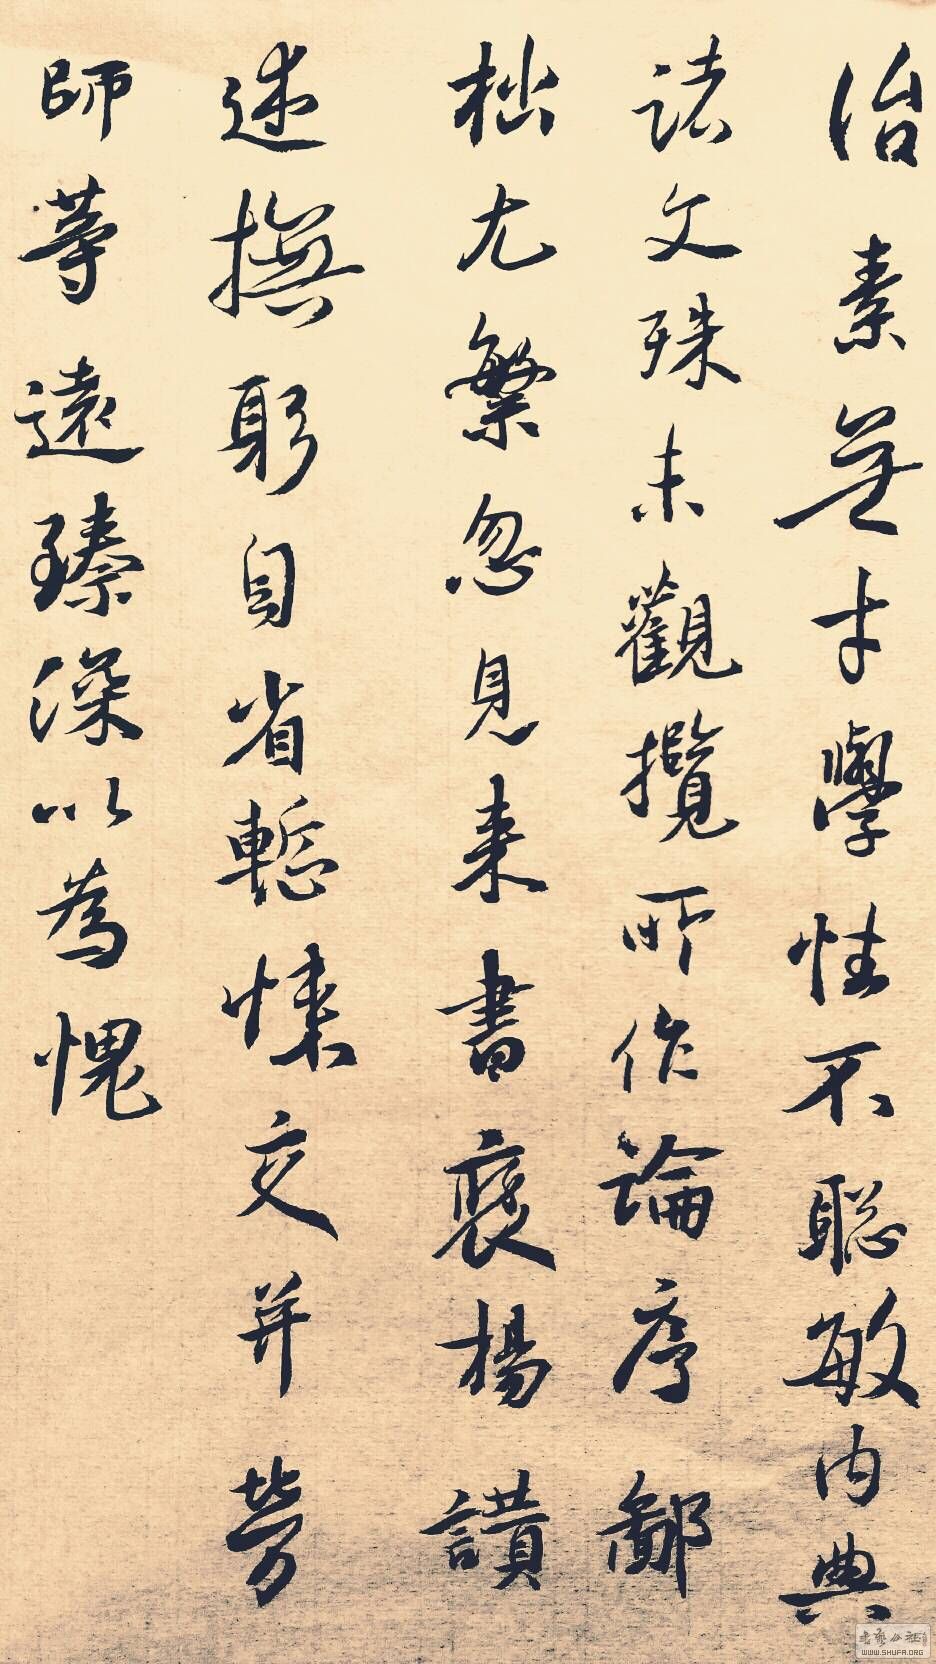 治素無才學性不聰敏內典
諸文殊未觀攬所作論序鄙
拙尤繁忽見來書褒揚讚
述撫躬自省慙悚交并勞
師等遠臻深以為愧
WWW.SHUFA.ORG